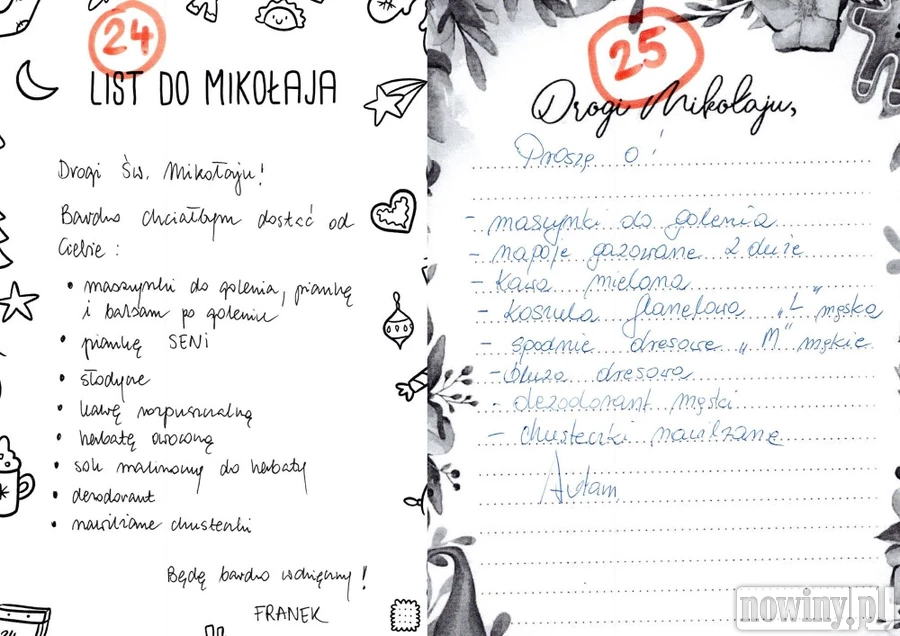 24
LIST DO MIKOŁAJA
Drogi Św. Mikołaju!
Bardzo chciałbym dostać od
Ciebie:
• maszynki do golenia, piankę
i balsam po goleniu
• piankę SENI
• słodycze
• kawę rozpuszczalną
• herbatę owocową
• sok malinowy do herbaty
• dezodorant
• nawilżane chusteczki
Będę bardzo wdzięczny!
FRANEK
25
Drogi Mikołaju,
Proszę o!
- maszynki do golenia
- napoje gazowane 2 duże
- kawa mielona
- koszula flanelowa "L" męska
- spodnie dresowe "M" męskie
- bluza dresowa
- dezodorant męski
- chusteczki nawilżane
24
nowiny.pl